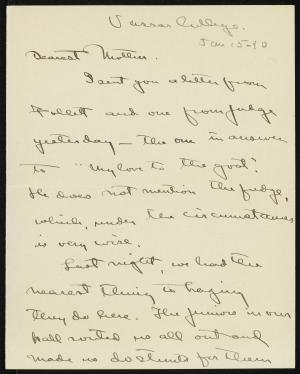 Vassar College.
Jan 15-90
Dearest Mother.
I sent you a letter from
Follett and one from Judge
yesterday — the one in answer
to "My love to the goat".
He does not mention the fudge,
which, under the circumstances
is very wise.
Last night, we had the
nearest thing to hazing
they do here. The juniors in our
hall routed us all out and
made us do stunts for them